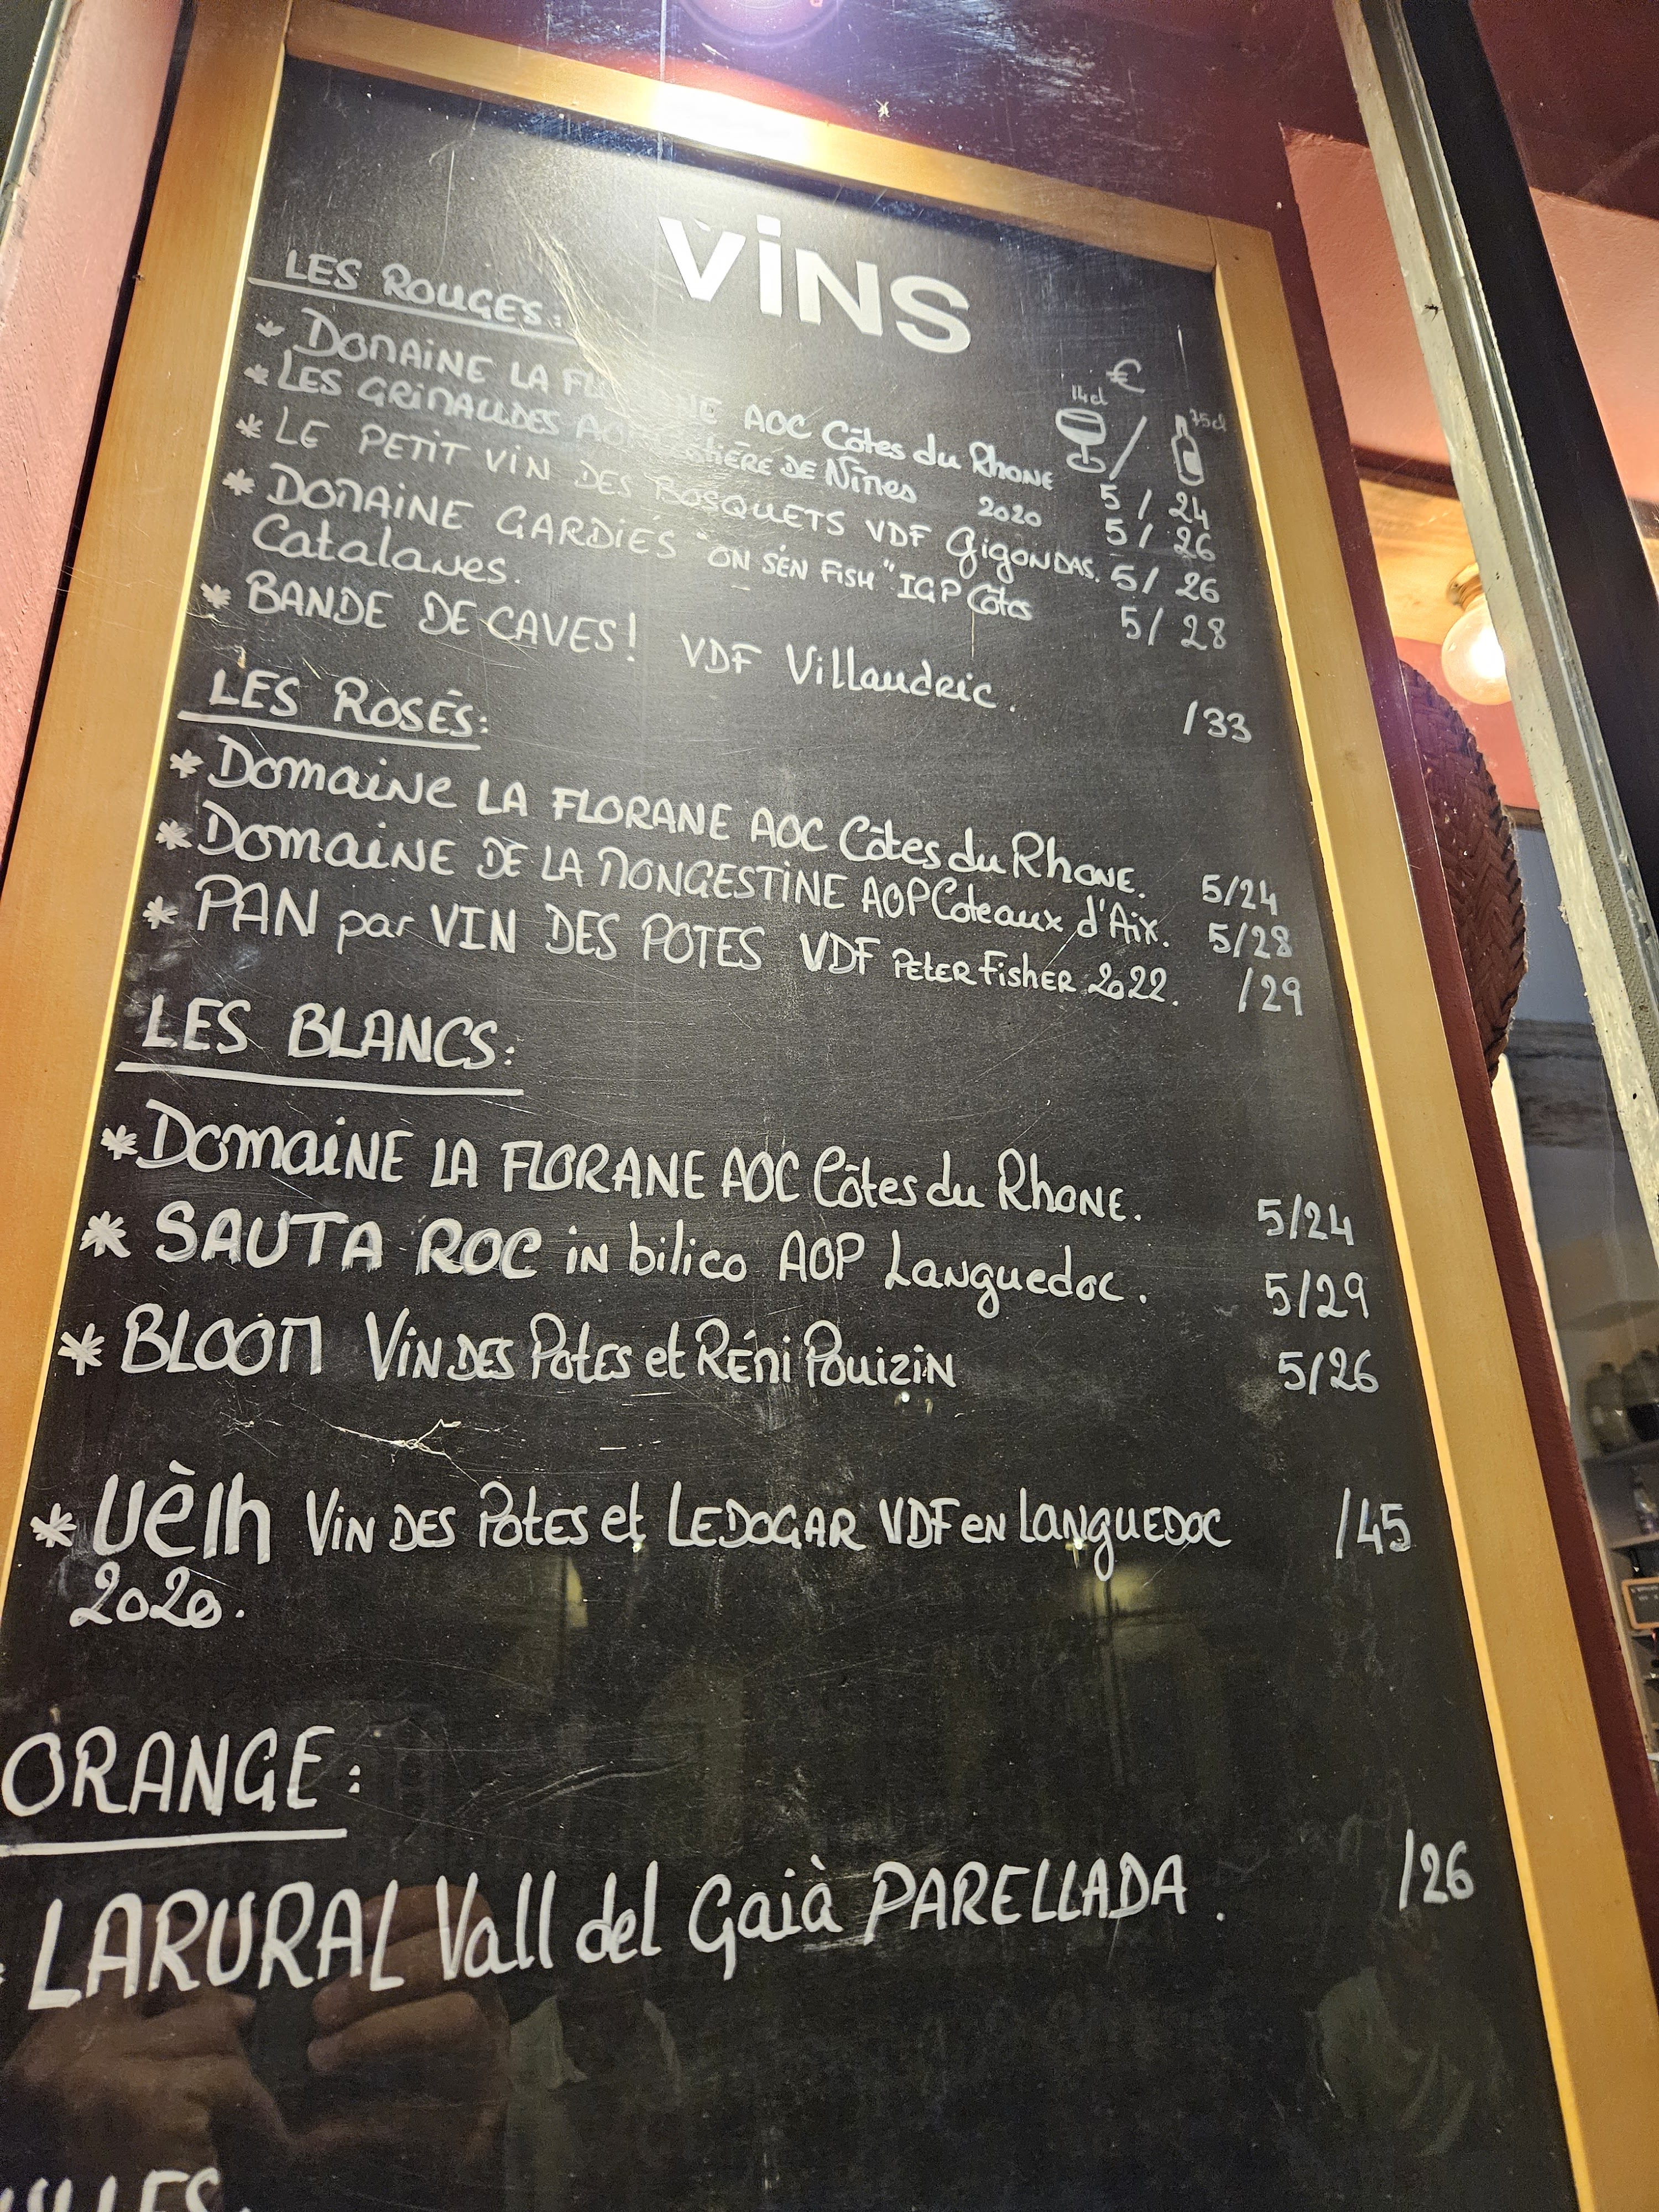 ViNS
LES ROUGES:
€
14cl / 75cl
* DOMAINE LA FLORANE AOC Côtes du Rhone 5 / 24
* LES GRIMAUDES AOP Costière DE Nîmes 2020 5 / 26
* LE PETIT VIN DES BOSQUETS VDF Gigondas. 5 / 26
* DOMAINE GARDIÉS "ON S'EN FISH" IGP Côtes 5 / 28
Catalanes.
* BANDE DE CAVES! VDF Villaudric. /33
LES ROSÉS:
* Domaine LA FLORANE AOC Côtes du Rhone. 5/24
* Domaine DE LA MONGESTINE AOP Coteaux d'Aix. 5/28
* PAN par VIN DES POTES VDF PETER FisHER 2022. /29
LES BLANCS:
* Domaine LA FLORANE AOC Côtes du Rhone. 5/24
* SAUTA ROC in bilico AOP Languedoc. 5/29
* BLOOM Vin DES Potes et Rémi Pouizin 5/26
* Uèlh Vin DES Potes et LEDOGAR VDF en languedoc /45
2020.
ORANGE:
LARURAL Vall del Gaià PARELLADA. /26